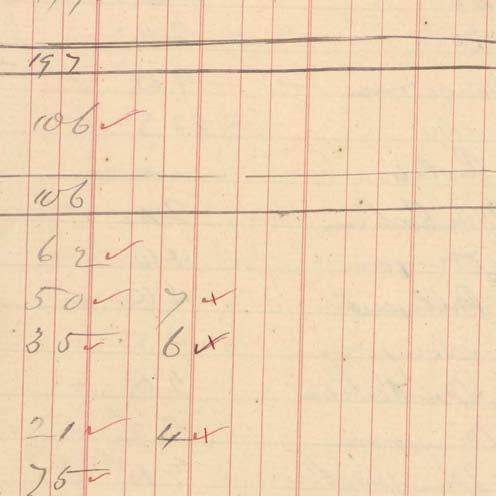 197
106 ✓
106
62 ✓
50 ✓ 7 ×
35 ✓ 6 ×
21 ✓ 4 ×
75 ✓